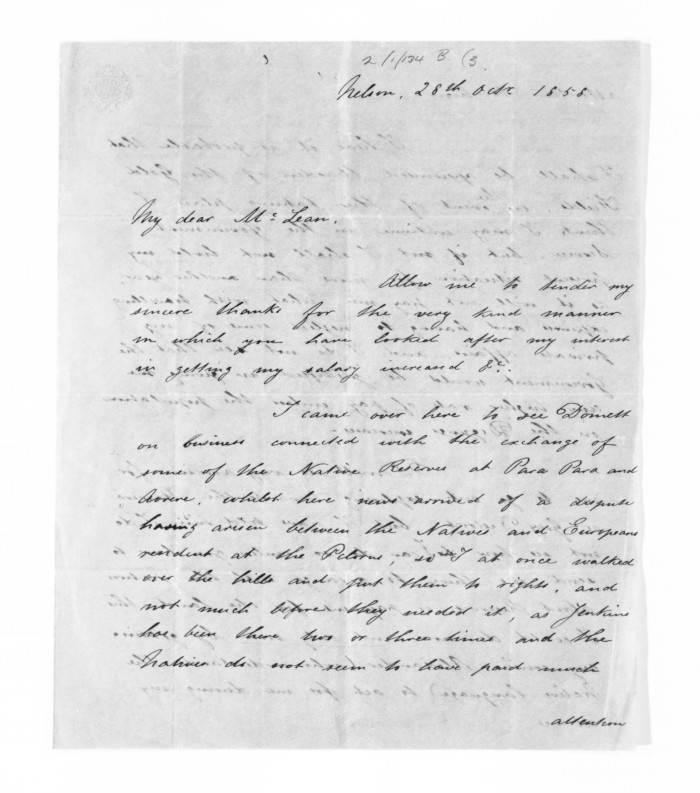 2/1/134 B. (3
Nelson, 28th Octr 1858
My dear Mc Lean.
Allow me to tender my
sincere thanks for the very kind manner
in which you have looked after my interest
in getting my salary increased &c.
I came over here to see Domett
on business connected with the exchange of
some of the Native Reserves at Para Para and
Aorere, whilst here news arrived of a dispute
having arisen between the Natives and Europeans
resident at the Pelorus, so I at once walked
over the hills and put them to rights, and
not much before they needed it, as Jenkins
has been there two or three times and the
Natives do not seem to have paid much
attention